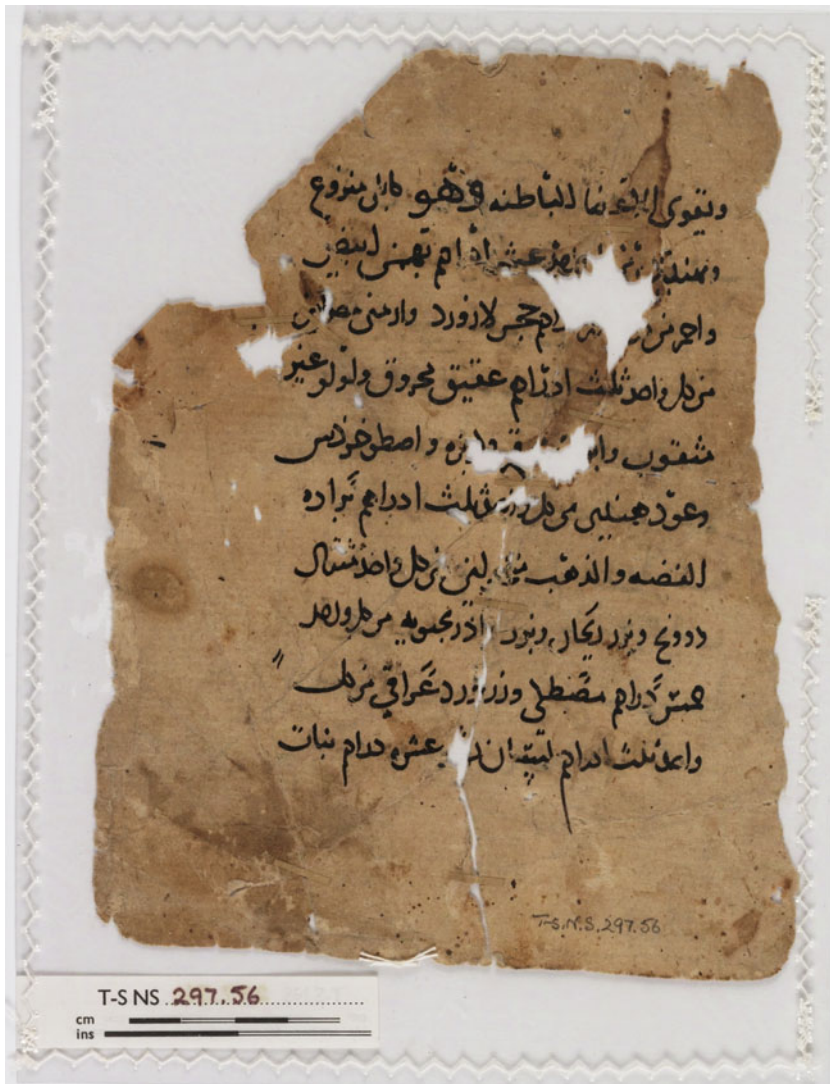 وتقوى الاعضا الباطنه وهو كابلى منزوع
عشر ادراهم بهمن ابيض
واحمر من حجر لازورد وارمنى
من كل واحد ثلث ادراهم عقيق محروق ولولو غير
مثقوب واصطوخودس
وعود هندى من كل ثلث ادراهم براده
الفضه والذهب من كل واحد مثقال
درونج وبزر ريحان وبزر بادرنجبويه من كل واحد
خمس دراهم مصطكى وزر ورد عراقى من كل
واحد ثلث ادراهم عشره دراهم نبات
T-S.N.S.297.56
T-S NS 297.56
cm
ins